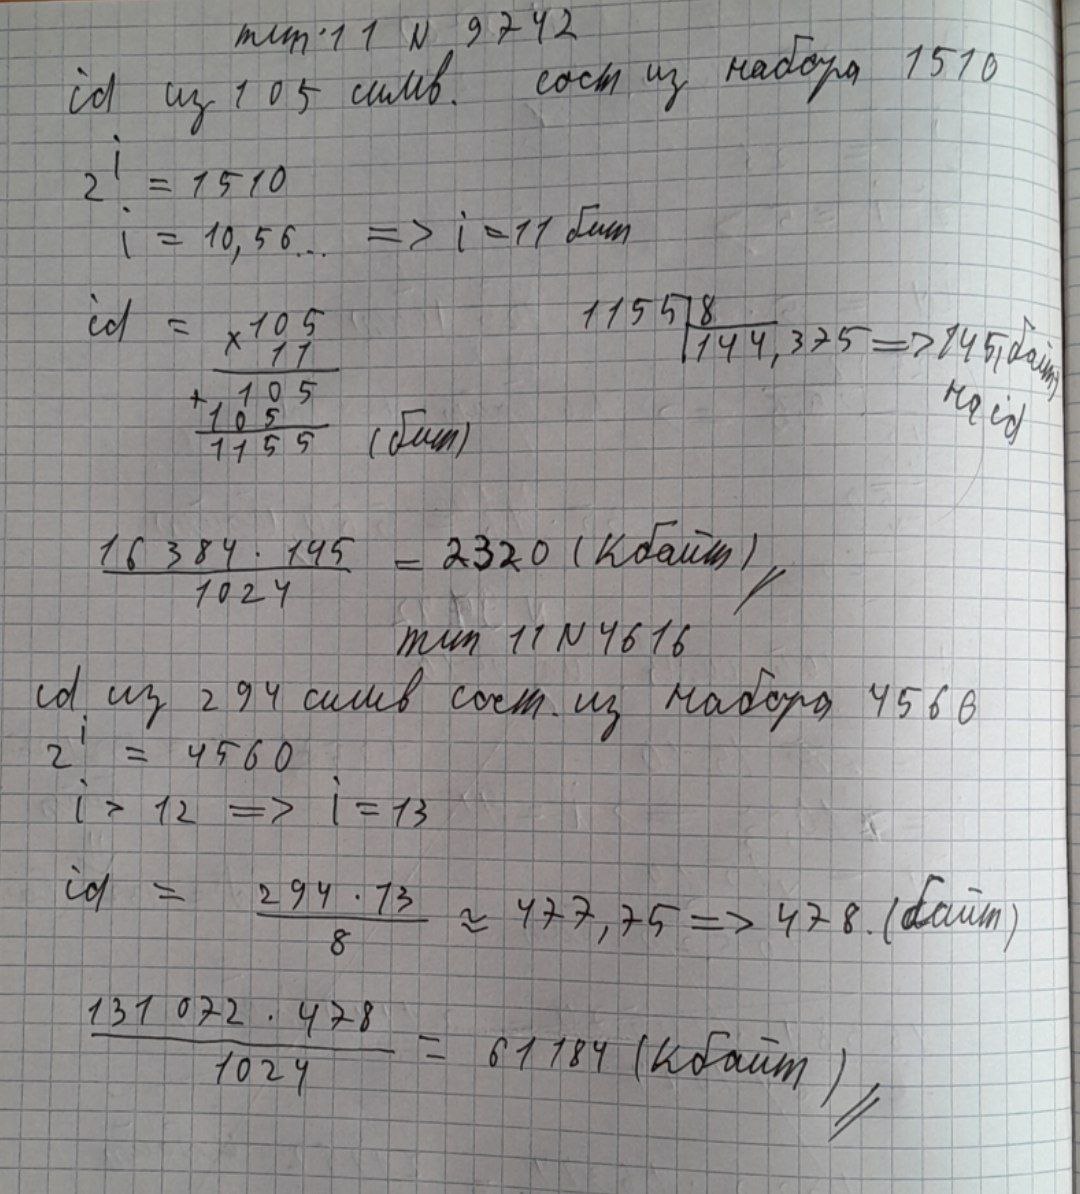 тип 11 N 9742
id из 105 симв. сост из набора 1510
2^i = 1510
i = 10,56... => i = 11 бит
id = × 105
11
+ 105
105
1155 (бит)
1155 | 8
144,375 => 145, байт
на id
16 384 · 145
1024
= 2320 (Кбайт)
тип 11 N 4616
id из 294 симв сост. из набора 4560
2^i = 4560
i > 12 => i = 13
id = 294 · 13
8
≈ 477,75 => 478. (байт)
131 072 · 478
1024
= 61184 (Кбайт)